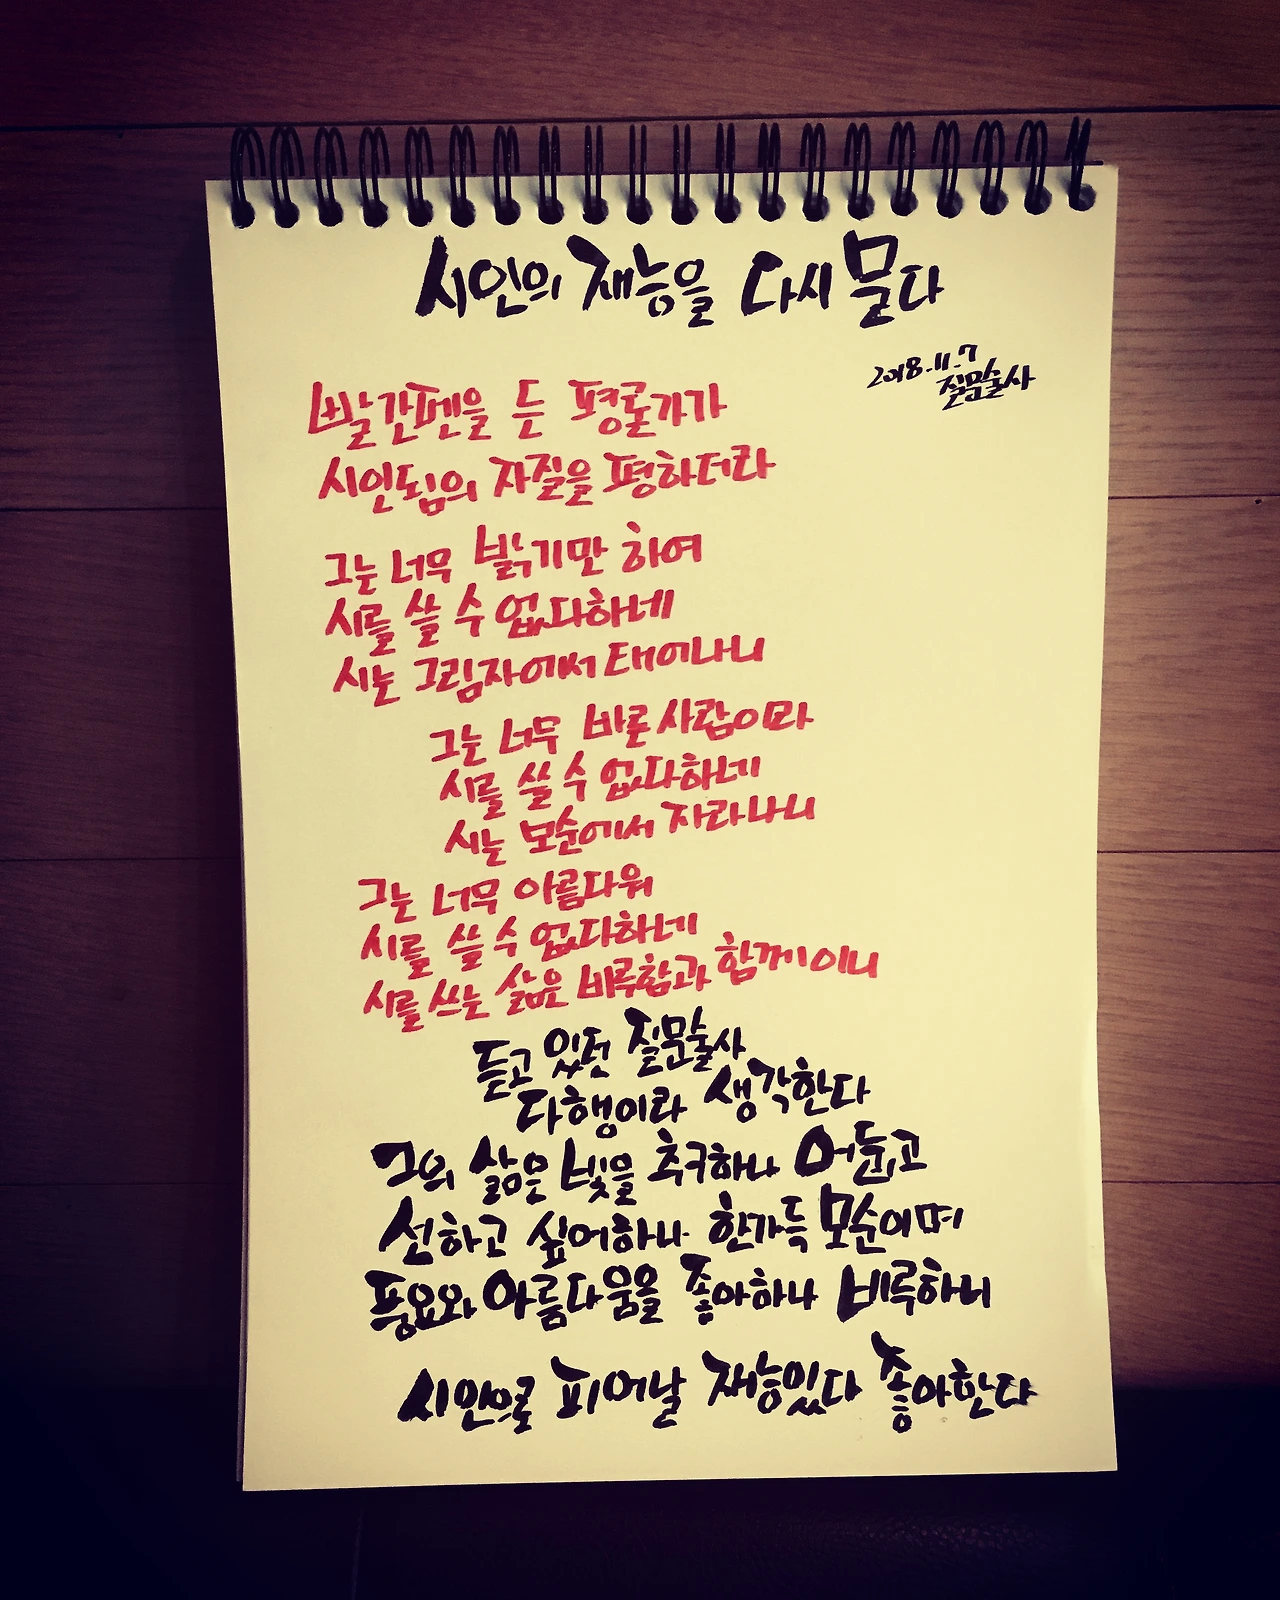 시인의 재능을 다시 묻다
2018.11.7
질문술사
빨간펜을 든 평론가가
시인됨의 자질을 평하더라
그는 너무 밝기만 하여
시를 쓸 수 없다하네
시는 그림자에서 태어나니
그는 너무 바른 사람이라
시를 쓸 수 없다하네
시는 모순에서 자라나니
그는 너무 아름다워
시를 쓸 수 없다하네
시를 쓰는 삶은 비루함과 함께이니
듣고 있던 질문술사
다행이라 생각한다
그의 삶은 빛을 추구하나 어둡고
선하고 싶어하나 한가득 모순이며
풍요와 아름다움을 좋아하나 비루하니
시인으로 피어날 재능있다 좋아한다